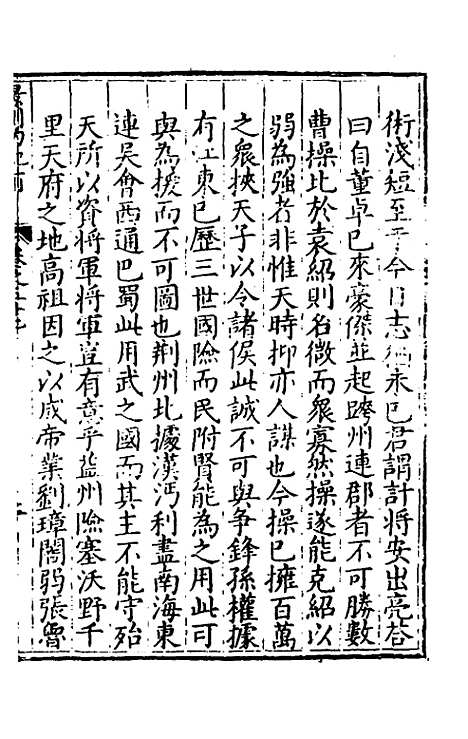 術淺短至于今日志猶未已君謂計將安出亮荅
曰自董卓已來豪傑並起跨州連郡者不可勝數
曹操比於袁紹則名微而衆寡然操遂能克紹以
弱為強者非惟天時抑亦人謀也今操已擁百萬
之衆挾天子以令諸侯此誠不可與争鋒孫權據
有江東已歷三世國險而民附賢能為之用此可
與為援而不可圖也荆州北據漢沔利盡南海東
連吳會西通巴蜀此用武之國而其主不能守殆
天所以資將軍將軍豈有意乎益州險塞沃野千
里天府之地高祖因之以成帝業劉璋闇弱張魯